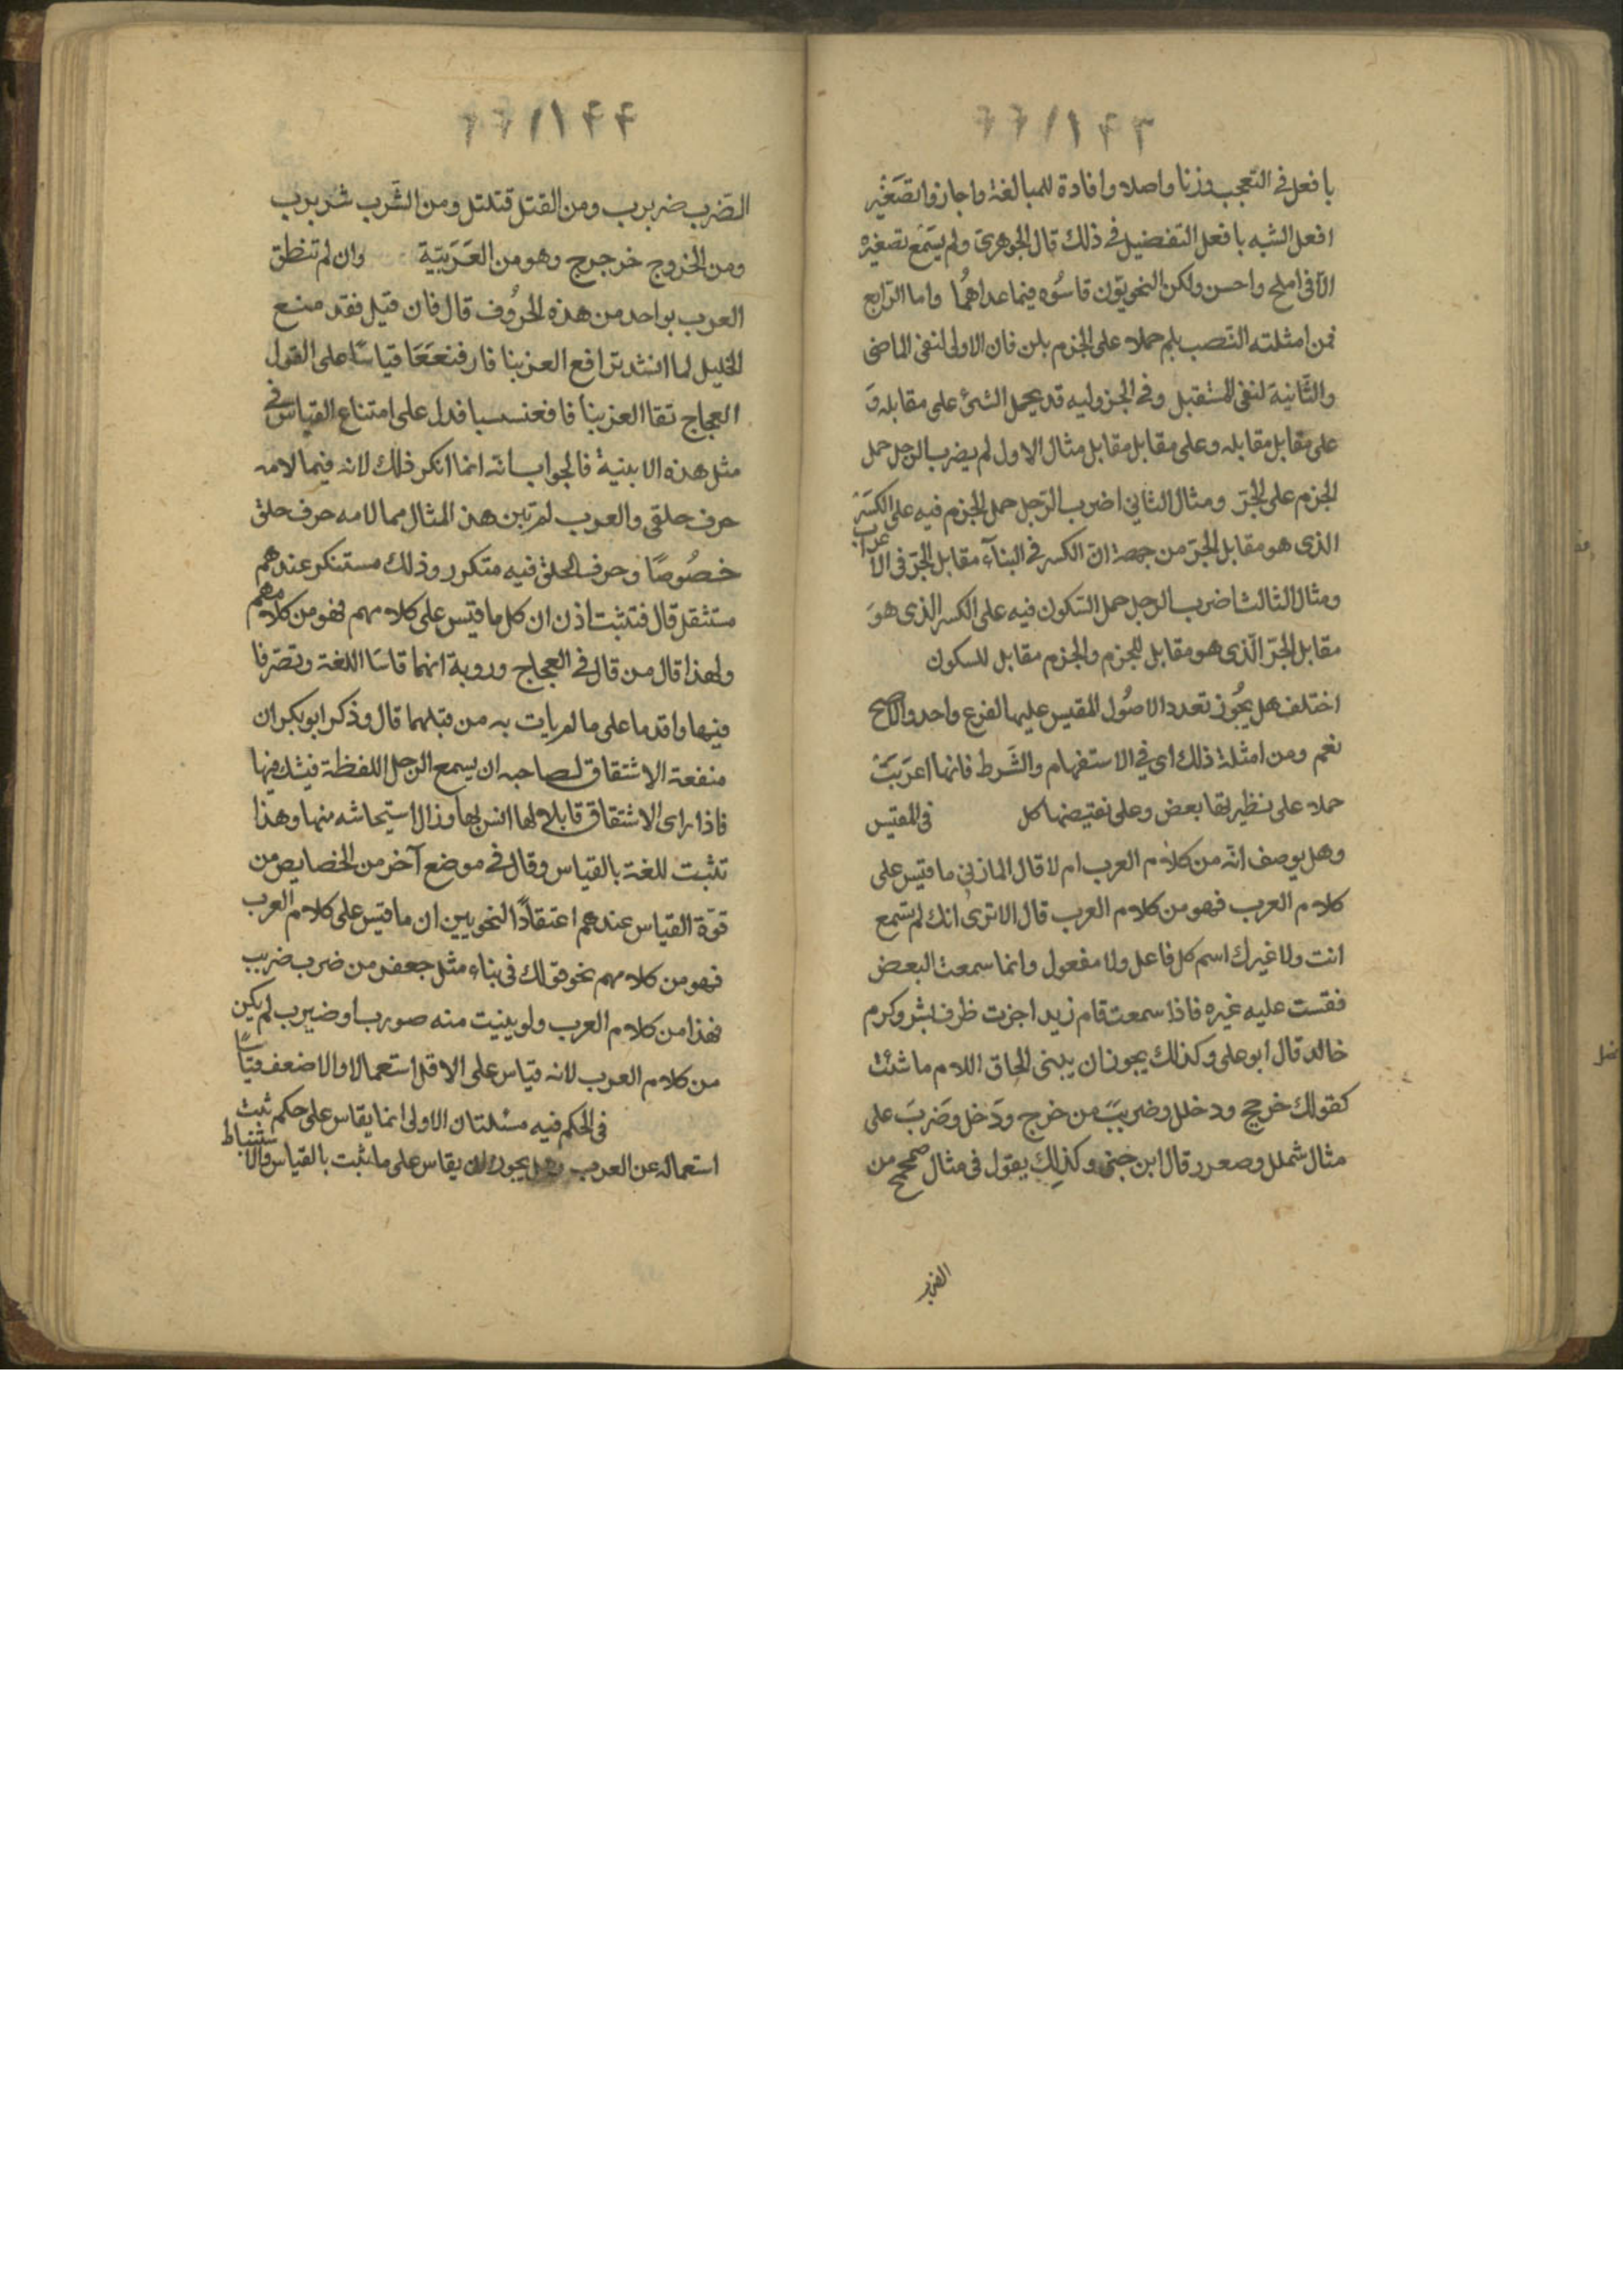 ٦٦١١٤٣
بافعل في التعجب وزنا واصلا وافادة للمبالغة واجازوا تصَغيْر
افعل الشبه بافعل التفضيل في ذلك قال الجوهرى ولم يسَمَع تصغيره
الآفى املح واحسن ولكن النحويّون قاسُوه فيما عداهُما واما الرّابع
فمن امثلته النّصب بلم حملا على الجزم بلن فان الاولى لنفى الماضى
والثّانية لنفى المستقبل وفى الجزوليه قد يحمل الشىء على مقابله وَ
على مقابل مقابله وعلى مقابل مقابل مثال الاول لم يضرب الرّجل حمل
الجزم على الجرّ ومثال الثانى اضرب الرّجل حمل الجزم فيه على الكسَرة
الذى هو مقابل الجرّ من جهة انّ الكسر فى البنآء مقابل الجرّ فى الاعراب
ومثال الثالث اضرب الرجل حمل السّكون فيه على الكسر الذى هوَ
مقابل الجرّ الّذى هو مقابل للجزم والجزم مقابل للسكون
اختلف هل يجُوز تعدد الاصُول المقيس عليها لفرع واحد والاصح
نعم ومن امثلة ذلك اى في الاستفهام والشَرط فانها اعرَبَتْ
حملا على نظيرتها بعض وعلى نقيضها كل فى المقيس
وهل يوصف انّه من كلام العرب ام لا قال المازنى ما قيس على
كلام العرب فهو من كلام العرب قال الا ترى انك لم تسمع
انت ولا غيرك اسم كل فاعل ولا مفعول وانما سمعت البعض
فقست عليه غيره فاذا سمعت قام زيد اجزت ظرف بشر وكرم
خالد قال ابو على وكذلك يجوز ان يبنى الحاق اللام ما شئت
كقولك خرجج ودخلل وضربَبَ من خرج ودَخل وضَربَ على
مثال شملل وصعرر قال ابن جنى وكذلك يقول فى مثال صمحمح من
الضرب
٦٦١١٤٤
الضَرب ضربرب ومن القتل قتلتل ومن الشَرب شربرب
ومن الخروج خرجرج وهو من العَرَبيّة وان لم تنطق
العرب بواحد من هذه الحروُف قال فان قيل فقد منع
الخليل لما انشد ترافع العز بنا فارفنععَا قياسًا على القول
العجاج تقاا العز بنا فافعنسسا فدل على امتناع القياس فى
مثل هذه الابنية فالجواب انّه انما انكر ذلك لانه فيما لامه
حرف حلقى والعرب لم تبن هذ المثال مما لامه حرف حلق
خصُوصًا وحرف الحلق فيه متكرر وذلك مستنكر عندهم
مستثقل قال فتثبت اذن ان كل ما قيس على كلامهم فهو من كلامهم
ولهذا قال من قال فى العجاج وروبة انهما قاسَا اللغة وتصَرفا
فيها واقدما على ما لم يات به من قبلهما قال وذكر ابو بكر ان
منفعة الاشتقاق لصاحبه ان يسمع الرجل اللفظة فيشك فيها
فاذا راى الاشتقاق قابلا لها انس بها وزال استيحاشه منها وهذا
تثبت للغة بالقياس وقال فى موضع آخر من الخصايص من
قوّة القياس عندهم اعتقادًا النحويين ان ما قيس على كلام العرب
فهو من كلامهم نحو قولك فى بناء مثل جعفر من ضرب ضربب
فهذا من كلام العرب ولو بنيت منه صورب او ضيرب لم يكن
من كلام العرب لانه قياس على الاقل استعمالا والاضعف قياسًا
فى الحكم فيه مسئلتان الاولى انما يقاس على حكم ثبت
استعماله عن العرب وهل يجوز ان يقاس على ما ثبت بالقياس والاستنباط